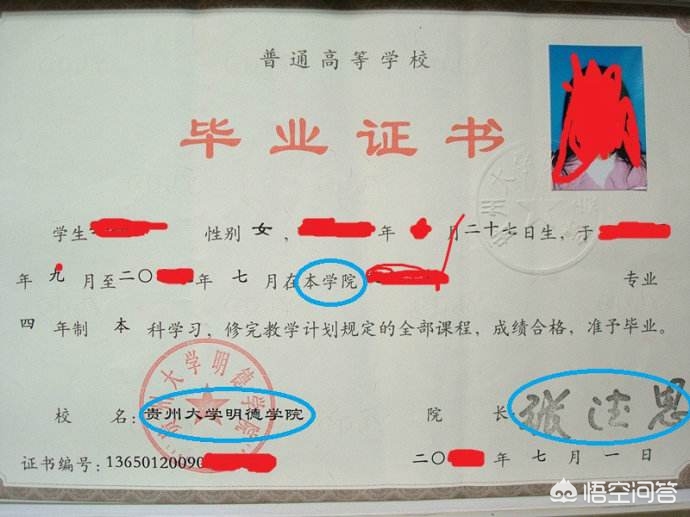 普通高等学校
毕业证书
学生 性别 女， 年 月二十七日生，于
年 九 月至二〇 年 七 月在本学院 专业
四 年制 本 科学习，修完教学计划规定的全部课程，成绩合格，准予毕业。
贵州大学明德学院
校 名：贵州大学明德学院 院 长：张德恩
证书编号：13650120090 二〇 年 七 月 一 日
悟空问答